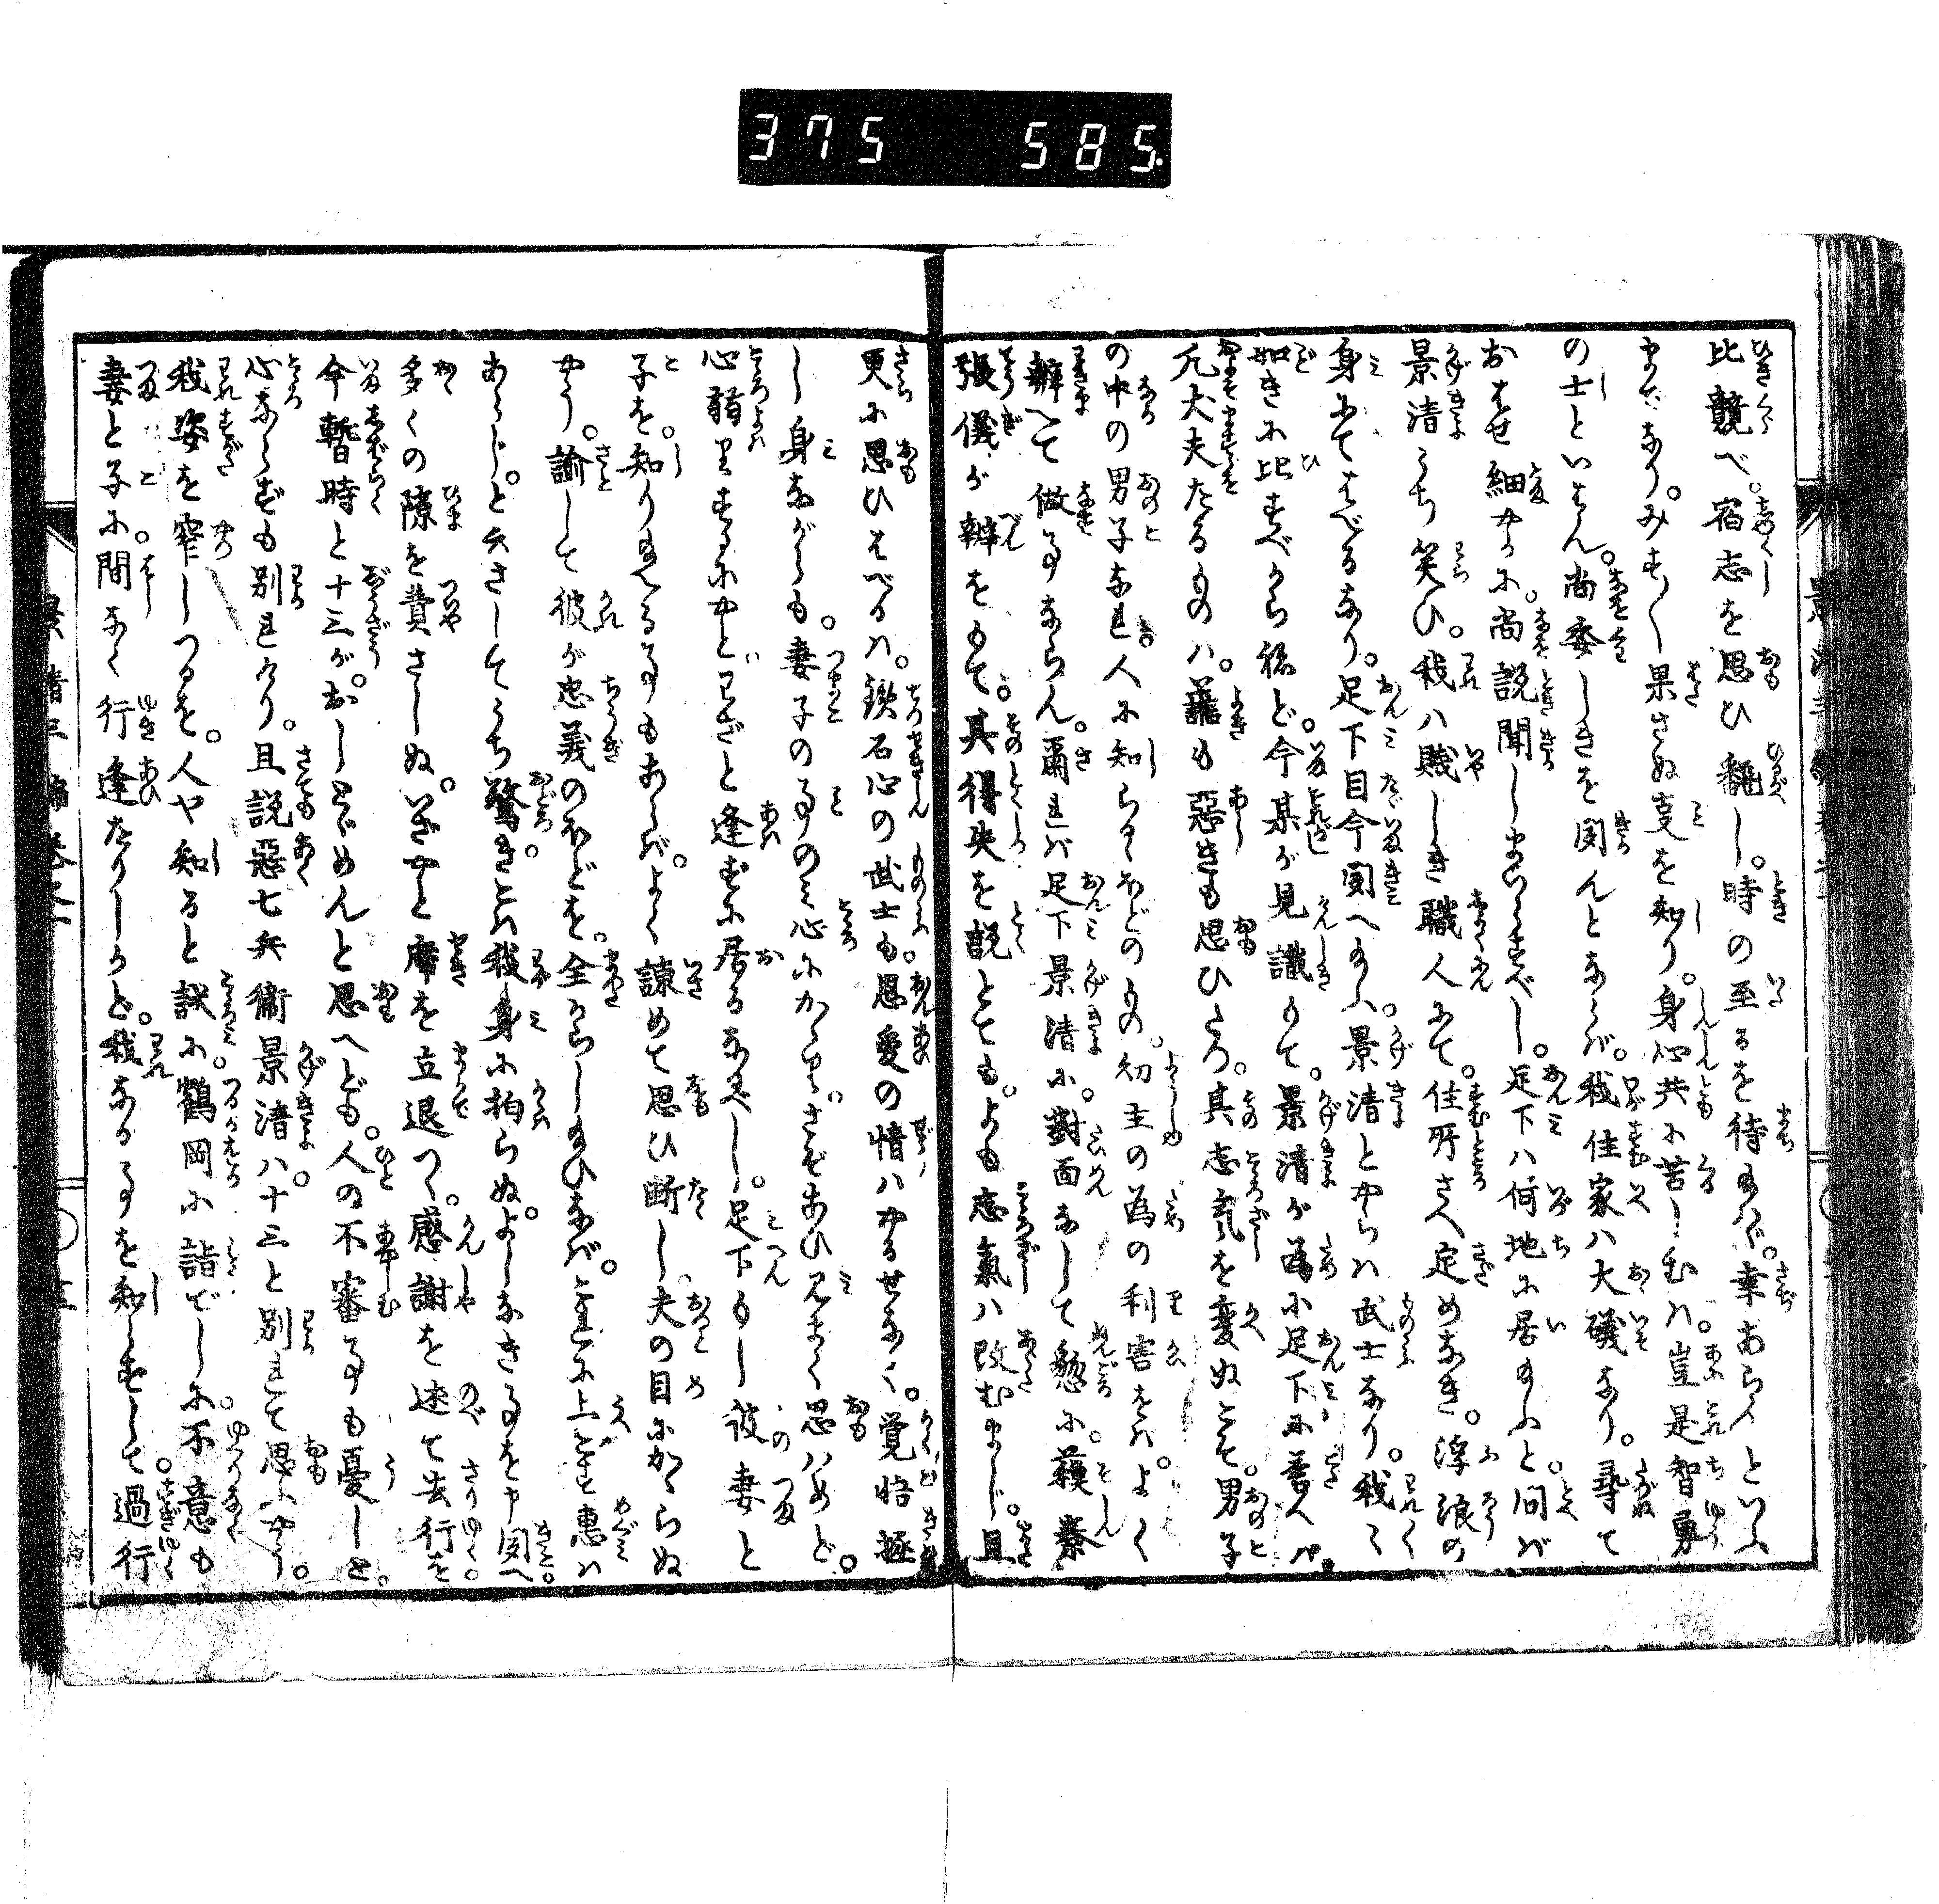 375 585.
比競べ。宿志を思ひ飜し。時の至るを待給はゞ。幸あらんといふ
までなり。みす〳〵果さぬ叓を知り。身心共に苦しむは。豈是智勇
の士といはん。尚委しきを聞んとならば。我住家は大磯なり。尋て
おはせ細やかに。尚説聞しまゐらすべし。足下は何地に居給ふと。問ば
景清うち笑ひ。我は賤しき職人にて。住所さへ定めなき。浮浪の
身にてはべるなり。足下目今聞へ給ふ。景清とやらは武士なり。我〻
如きに比すべからねど。今某が見識もて。景清が為に足下に答へん。
凡大夫たるものは。善も惡きも思ひしろ。其志気を変ぬこそ。男子
の中の男子なれ。人に知らるゝほどのもの。幼主の為の利害をば。よく
辨へて做事ならん。爾れば足下景清に。對面なして懇に。蘓秦
張儀が辨をもて。其得失を説とても。よも志氣は改むまじ。且
更に思ひはべるは。鉄石心の武士も。恩愛の情はやるせなく。覚悟極
し身ながらも。妻子の事のみ心にかゝり。さぞあひ見まく思はめど。
心弱りするにやと。わざと逢ずに居るなるべし。足下もし彼妻と
子を。知り見える事もあらば。よく諫めて思ひ断し。夫の目にかゝらぬ
やう。諭して彼が忠義のほどを。全からし給ひなば。これに上こす惠は
あらじ。と云さしてうち驚き。こは我身に拘らぬ。よしなき事をや聞へ。
多くの隙を費さしぬ。いざやと席を立退つ。感謝を述て去行を
今暫時と十三が。おしとゞめんと思へども。人の不審事も憂しと。
心ならずも別れけり。且説惡七兵衛景清は。十三と別れて思ふやう。
我姿を窄しつるを。人や知ると試に。鶴岡に詣でしに。不意も
妻と子に。間なく行逢たりしかど。我なる事を知らずして。過行